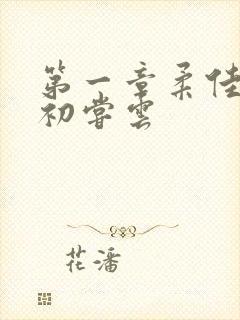 第一章柔佳
初尝云
花潘